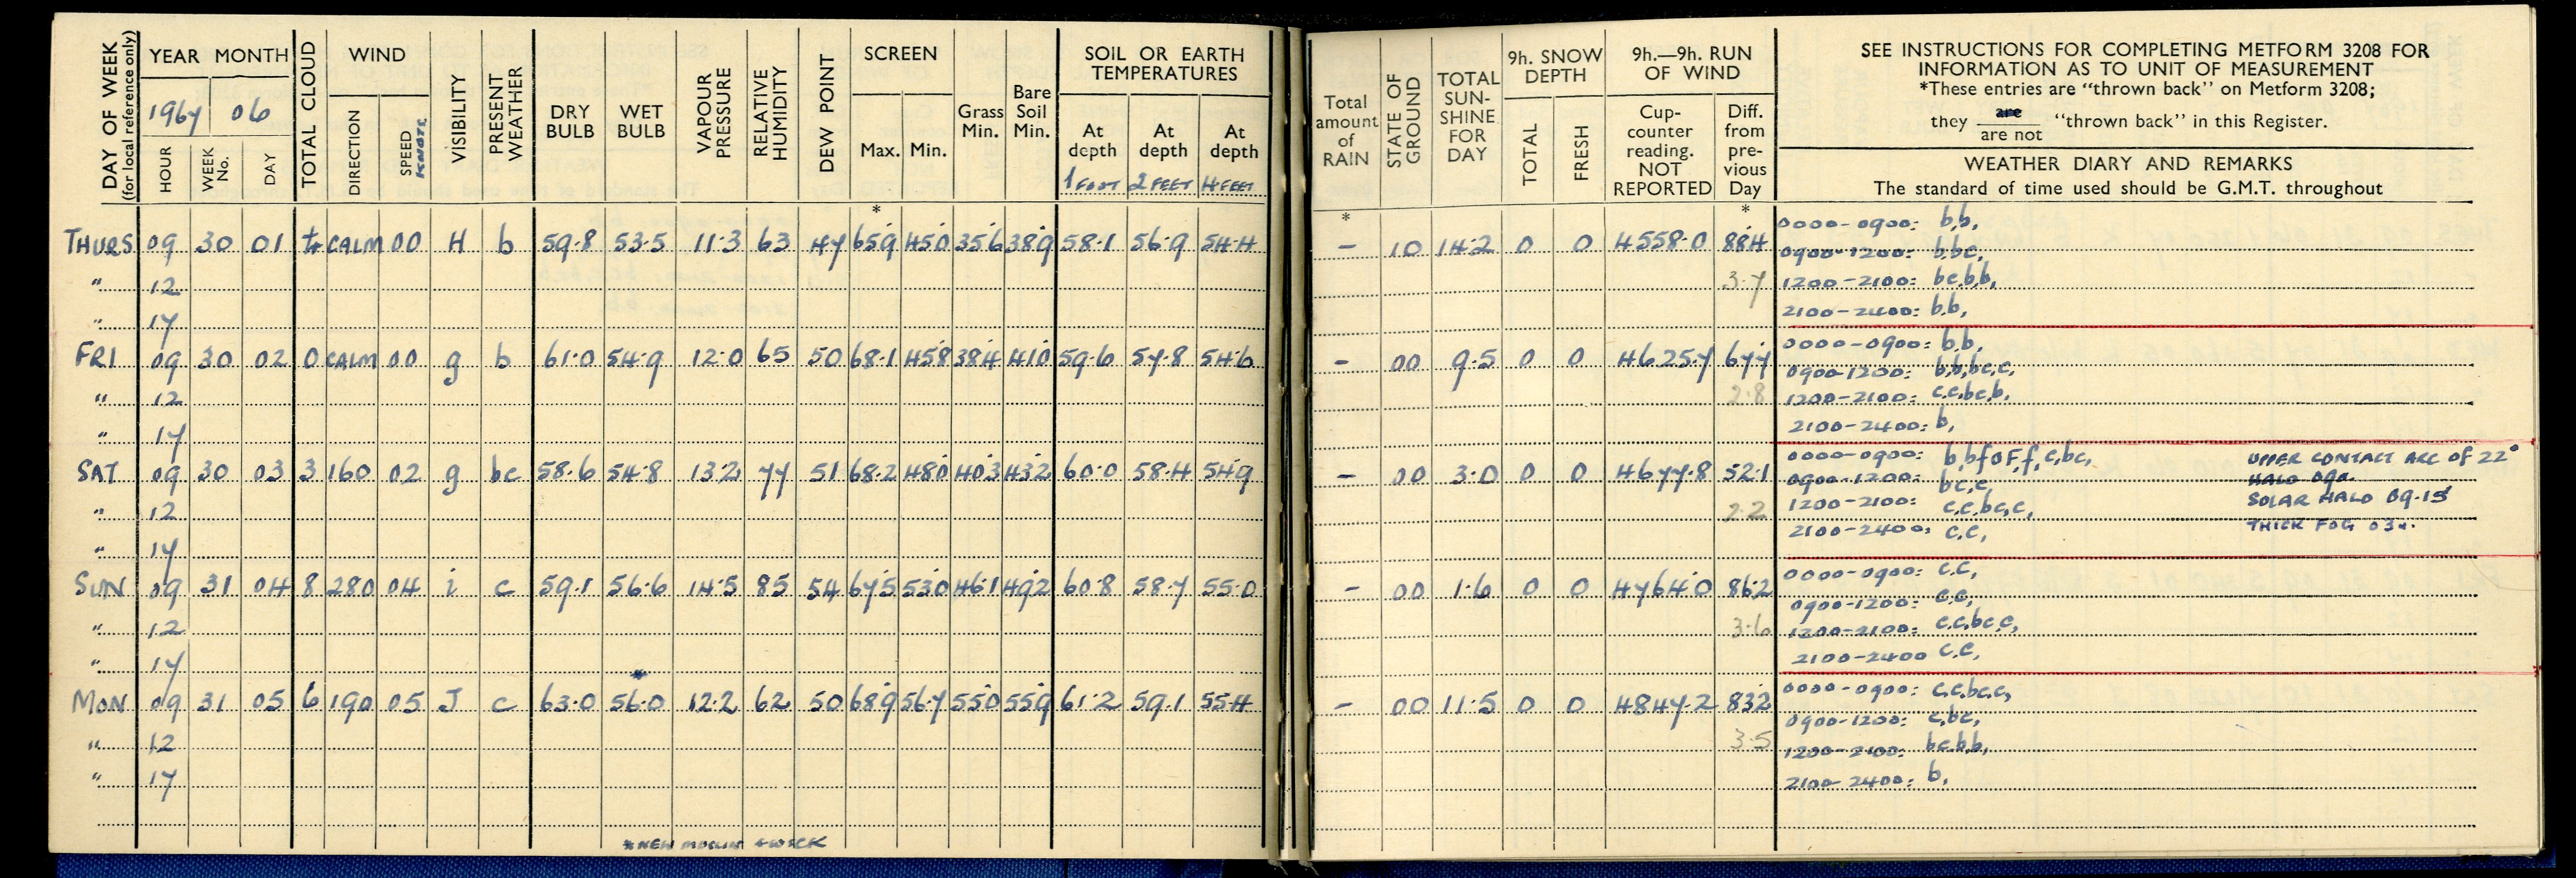 DAY OF WEEK
(for local reference only)
YEAR MONTH
1967 06
HOUR
WEEK No.
DAY
TOTAL CLOUD
WIND
DIRECTION
SPEED
KNOTS
VISIBILITY
PRESENT WEATHER
DRY BULB
WET BULB
VAPOUR PRESSURE
RELATIVE HUMIDITY
DEW POINT
SCREEN
Max. Min.
Grass Min.
Bare Soil Min.
SOIL OR EARTH
TEMPERATURES
At depth 1 FOOT
At depth 2 FEET
At depth 4 FEET
Total amount of RAIN
STATE OF GROUND
TOTAL SUN-SHINE FOR DAY
9h. SNOW DEPTH
TOTAL
FRESH
9h.—9h. RUN OF WIND
Cup-counter reading. NOT REPORTED
Diff. from pre-vious Day
SEE INSTRUCTIONS FOR COMPLETING METFORM 3208 FOR
INFORMATION AS TO UNIT OF MEASUREMENT
*These entries are "thrown back" on Metform 3208;
they are / are not "thrown back" in this Register.
WEATHER DIARY AND REMARKS
The standard of time used should be G.M.T. throughout
* * *
THURS 09 30 01 tr CALM 00 H b 59.8 53.5 11.3 63 47 65.9 45.0 35.6 38.9 58.1 56.9 54.4 – 10 14.2 0 0 4558.0 88.4
0000-0900: b,b,
0900-1200: b,bc,
" 12 3.7 1200-2100: bc,b,b,
" 17 2100-2400: b,b,
FRI 09 30 02 0 CALM 00 g b 61.0 54.9 12.0 65 50 68.1 45.8 38.4 41.0 59.6 57.8 54.6 – 00 9.5 0 0 4625.7 67.7
0000-0900: b,b,
0900-1200: b,b,bc,c,
" 12 2.8 1200-2100: c,c,bc,b,
" 17 2100-2400: b,
SAT 09 30 03 3 160 02 g bc 58.6 54.8 13.2 77 51 68.2 48.0 40.3 43.2 60.0 58.4 54.9 – 00 3.0 0 0 4677.8 52.1
0000-0900: b,bfoF,f,c,bc, UPPER CONTACT ARC OF 22°
0900-1200: bc,c, HALO 09a.
" 12 2.2 1200-2100: c,c,bc,c, SOLAR HALO 09-15
" 17 2100-2400: c,c, THICK FOG 03a.
SUN 09 31 04 8 280 04 i c 59.1 56.6 14.5 85 54 67.5 53.0 46.1 49.2 60.8 58.7 55.0 – 00 1.6 0 0 4764.0 86.2
0000-0900: c,c,
0900-1200: c,c,
" 12 3.6 1200-2100: c,c,bc,c,
" 17 2100-2400 c,c,
*
MON 09 31 05 6 190 05 J c 63.0 56.0 12.2 62 50 68.9 56.7 55.0 55.9 61.2 59.1 55.4 – 00 11.5 0 0 4847.2 83.2
0000-0900: c,c,bc,c,
0900-1200: c,bc,
" 12 3.5 1200-2100: bc,b,b,
" 17 2100-2400: b,
*NEW MUSLIN + WICK